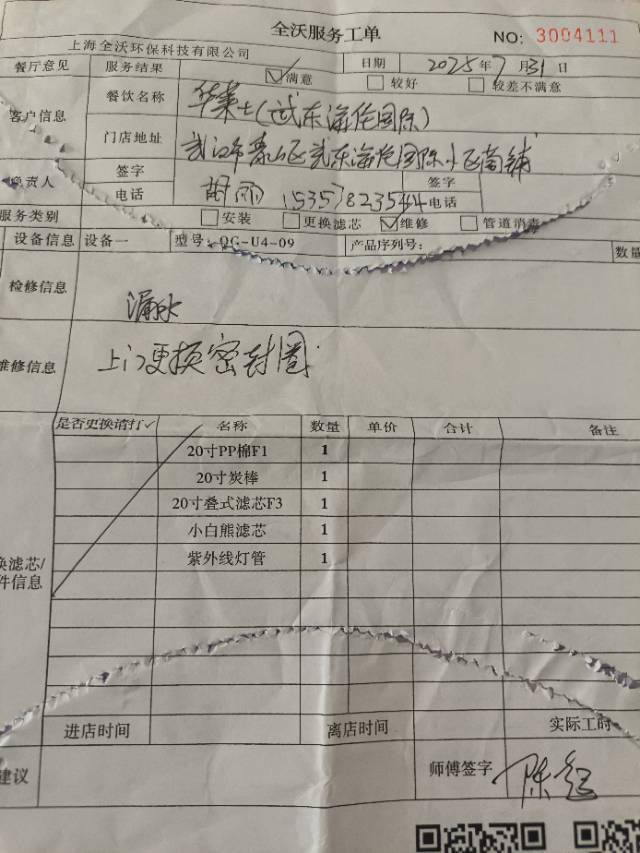 全沃服务工单
NO: 3004111
上海全沃环保科技有限公司
餐厅意见 服务结果 ☑满意 日期 2025年7月31日
□较好 □较差不满意
客户信息 餐饮名称 华莱士(武东海伦国际)
门店地址 武汉市青山区武东海伦国际小区商铺
负责人 签字 胡雨 签字
电话 电话
服务类别 □安装 □更换滤芯 ☑维修 □管道消毒
设备信息 设备一 型号: QG-U4-09 产品序列号: 数量
检修信息 漏水
维修信息 上门更换密封圈
是否更换请打✓ 名称 数量 单价 合计 备注
20寸PP棉F1 1
20寸炭棒 1
20寸叠式滤芯F3 1
小白熊滤芯 1
紫外线灯管 1
换滤芯/
件信息
进店时间 离店时间 实际工时
建议 师傅签字 陈